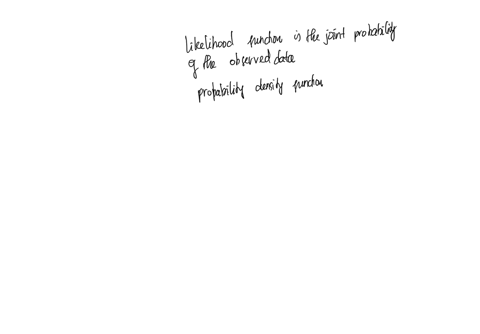 likelihood function is the joint probability
of the observed data
probability density function